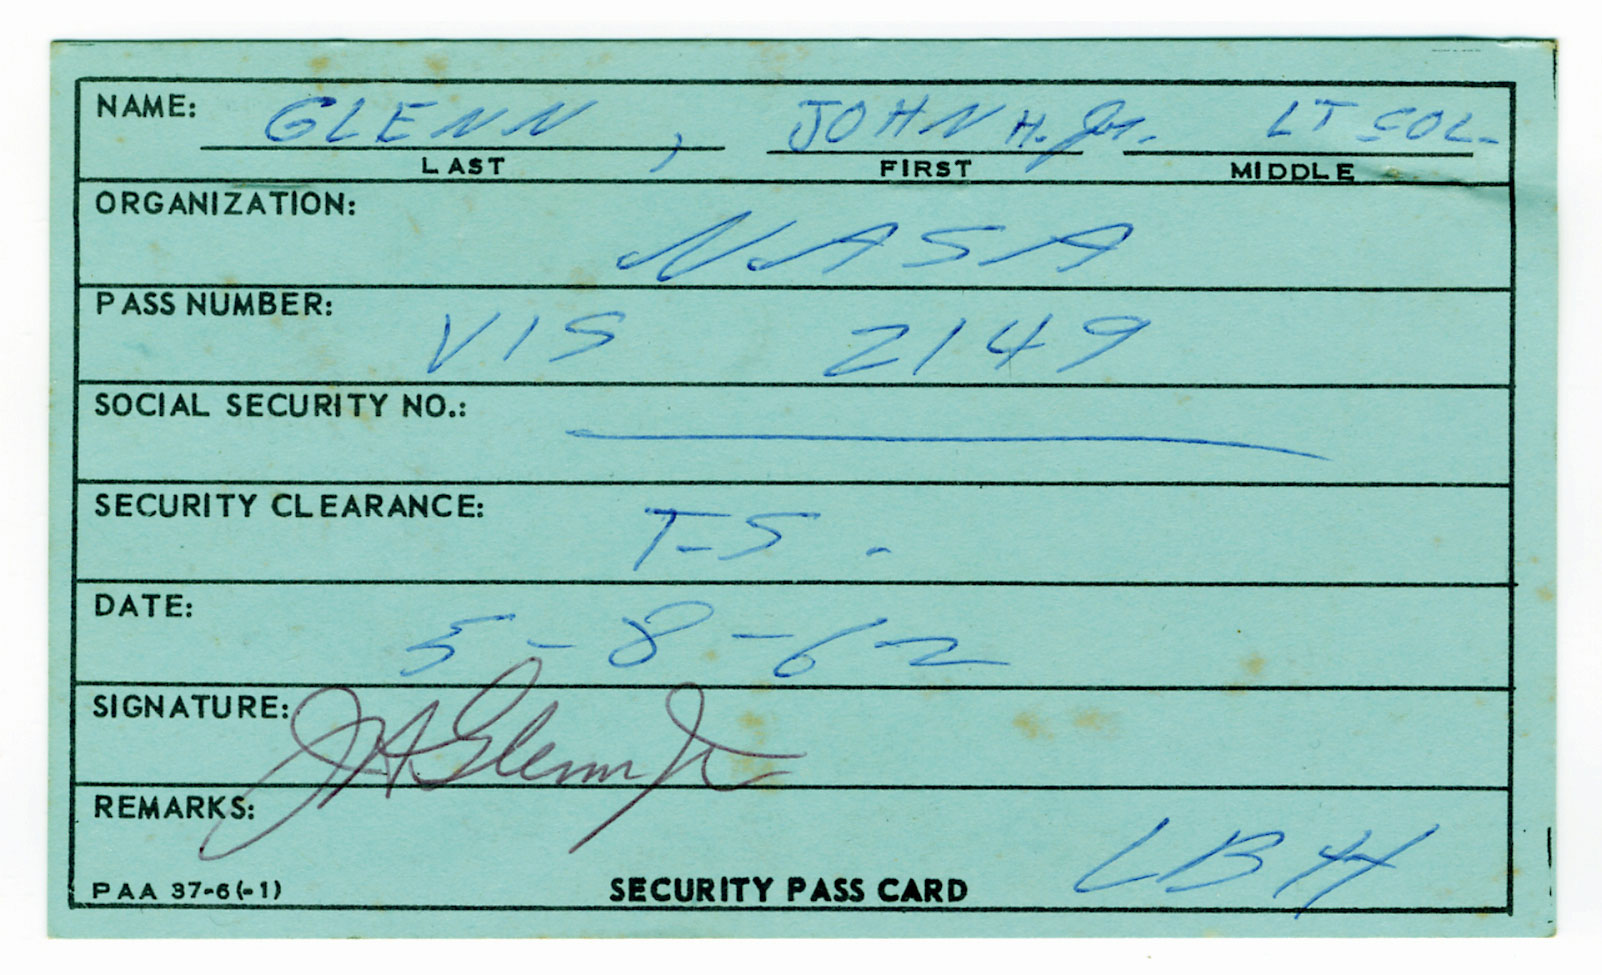 NAME: GLENN, JOHN H. Jr. LT COL.
LAST FIRST MIDDLE
ORGANIZATION: NASA
PASS NUMBER: VIS 2149
SOCIAL SECURITY NO.:
SECURITY CLEARANCE: T-S.
DATE: 5-8-62
SIGNATURE: JHGlenn Jr
REMARKS: LBH
PAA 37-6(-1) SECURITY PASS CARD